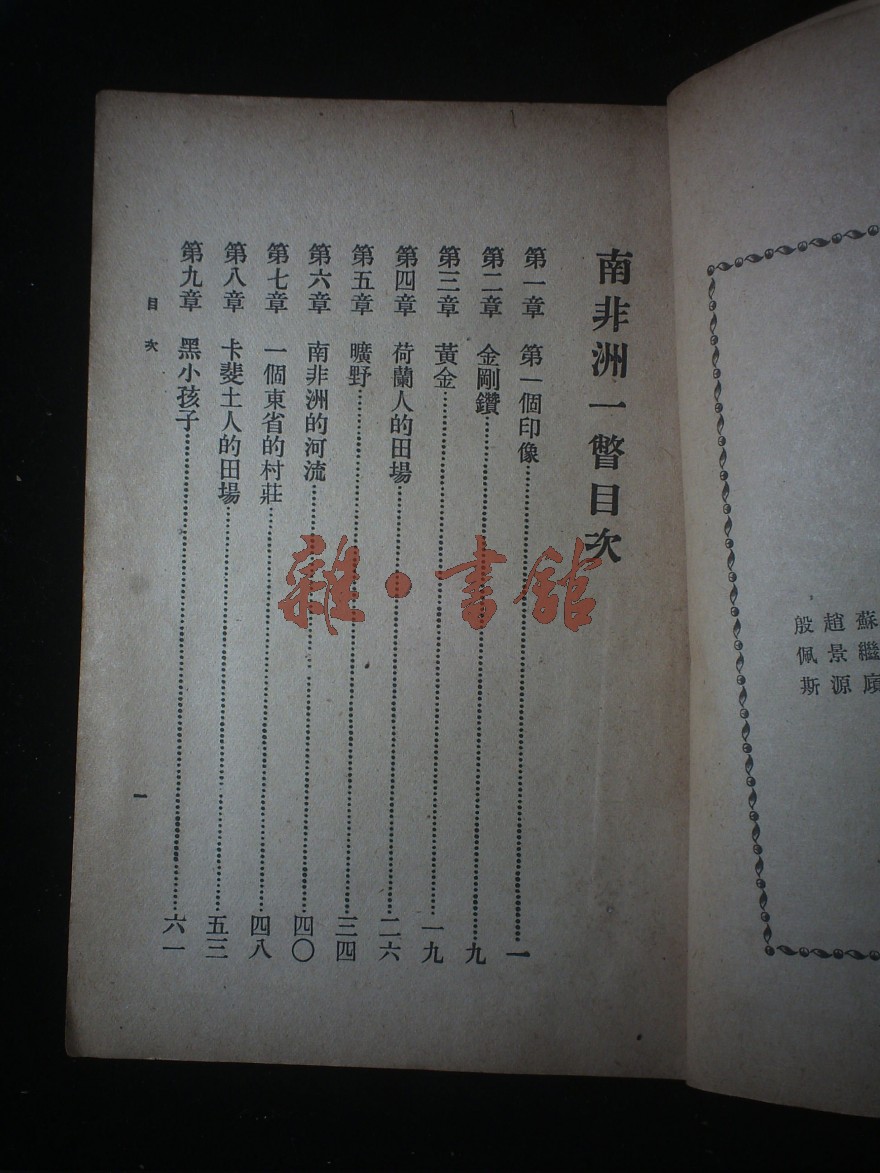 蘇繼廎
趙景源
殷佩斯
南非洲一瞥目次
第一章 第一個印像……一
第二章 金剛鑽……九
第三章 黃金……一九
第四章 荷蘭人的田場……二六
第五章 曠野……三四
第六章 南非洲的河流……四〇
第七章 一個東省的村莊……四八
第八章 卡斐土人的田場……五三
第九章 黑小孩子……六一
目次
一
雜·書館